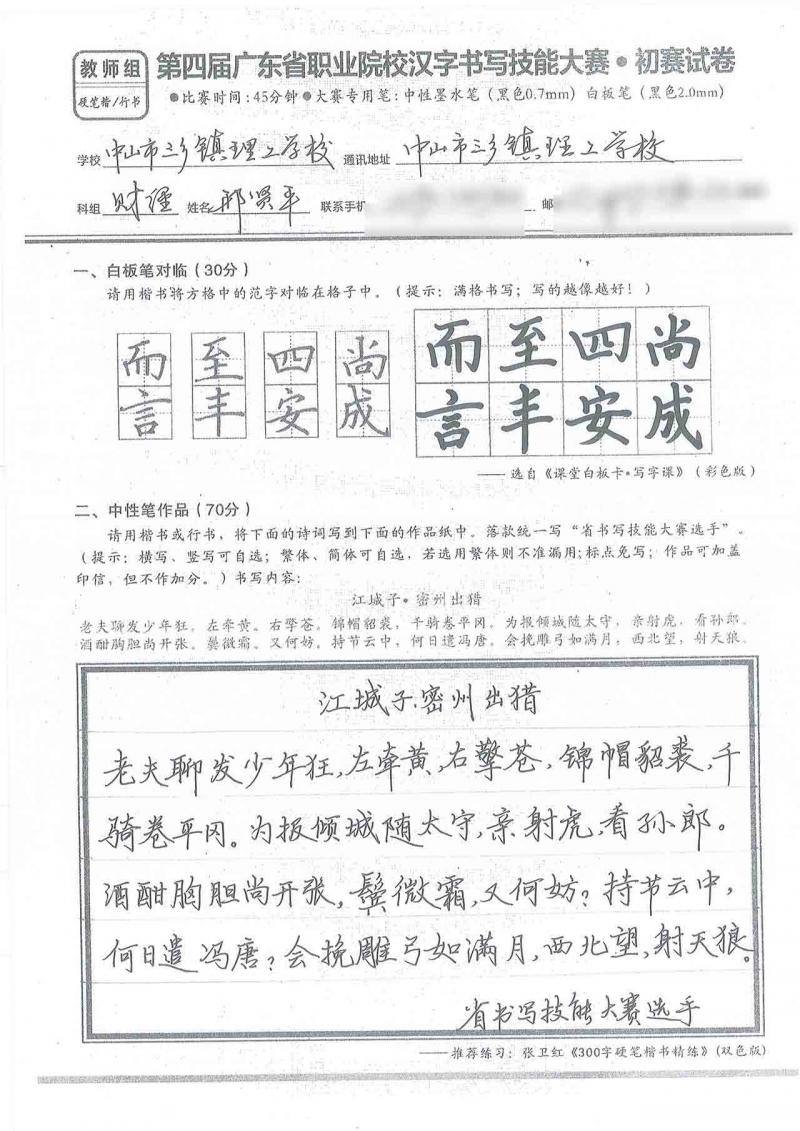 教师组
硬笔楷/行书
第四届广东省职业院校汉字书写技能大赛·初赛试卷
●比赛时间:45分钟●大赛专用笔:中性墨水笔(黑色0.7mm) 白板笔(黑色2.0mm)
学校 中山市三乡镇理工学校 通讯地址 中山市三乡镇理工学校
科组 财经 姓名 邢贤平 联系手机 邮
一、白板笔对临(30分)
请用楷书将方格中的范字对临在格子中。(提示:满格书写;写的越像越好!)
而 至 四 尚 而 至 四 尚
言 丰 安 成 言 丰 安 成
——选自《课堂白板卡·写字课》(彩色版)
二、中性笔作品(70分)
请用楷书或行书,将下面的诗词写到下面的作品纸中。落款统一写“省书写技能大赛选手”。
(提示:横写、竖写可自选;繁体、简体可自选,若选用繁体则不准漏用;标点免写;作品可加盖
印信,但不作加分。)书写内容:
江城子·密州出猎
老夫聊发少年狂,左牵黄。右擎苍。锦帽貂裘,千骑卷平冈。为报倾城随太守,亲射虎,看孙郎。
酒酣胸胆尚开张。鬓微霜。又何妨。持节云中,何日遣冯唐。会挽雕弓如满月,西北望,射天狼。
江城子·密州出猎
老夫聊发少年狂,左牵黄,右擎苍,锦帽貂裘,千
骑卷平冈。为报倾城随太守,亲射虎,看孙郎。
酒酣胸胆尚开张,鬓微霜,又何妨?持节云中,
何日遣冯唐?会挽雕弓如满月,西北望,射天狼。
省书写技能大赛选手
——推荐练习:张卫红《300字硬笔楷书精练》(双色版)